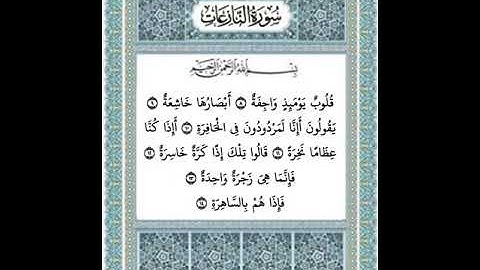 سُورَةُ النَّازِعَاتِ
بِسْمِ اللَّهِ الرَّحْمَٰنِ الرَّحِيمِ
قُلُوبٌ يَوْمَئِذٍ وَاجِفَةٌ ٨ أَبْصَارُهَا خَاشِعَةٌ ٩
يَقُولُونَ أَإِنَّا لَمَرْدُودُونَ فِي الْحَافِرَةِ ١٠ أَإِذَا كُنَّا
عِظَامًا نَخِرَةً ١١ قَالُوا تِلْكَ إِذًا كَرَّةٌ خَاسِرَةٌ ١٢
فَإِنَّمَا هِيَ زَجْرَةٌ وَاحِدَةٌ ١٣
فَإِذَا هُمْ بِالسَّاهِرَةِ ١٤